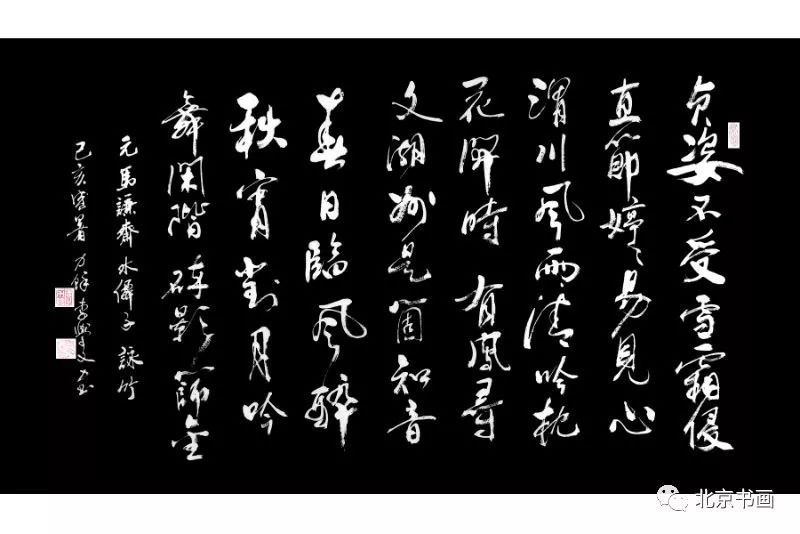 贞姿不受雪霜侵
直節婷婷易見心
渭川風雨清吟枕
花開時有鳳尋
文湖州是箇知音
春日臨風醉
秋宵對月吟
舞閑階碎影篩金
元馬謙齋水僊子詠竹
己亥
北京书画